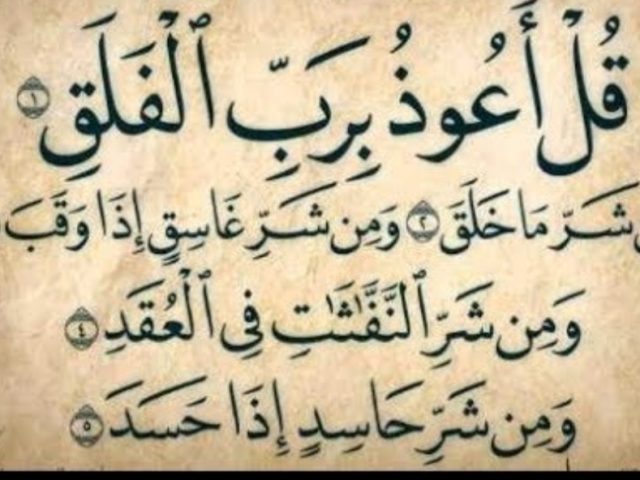 قُلْ أَعُوذُ بِرَبِّ ٱلْفَلَقِ ١
شَرِّ مَا خَلَقَ ٢ وَمِن شَرِّ غَاسِقٍ إِذَا وَقَبَ
وَمِن شَرِّ ٱلنَّفَّٰثَٰتِ فِى ٱلْعُقَدِ ٤
وَمِن شَرِّ حَاسِدٍ إِذَا حَسَدَ ٥